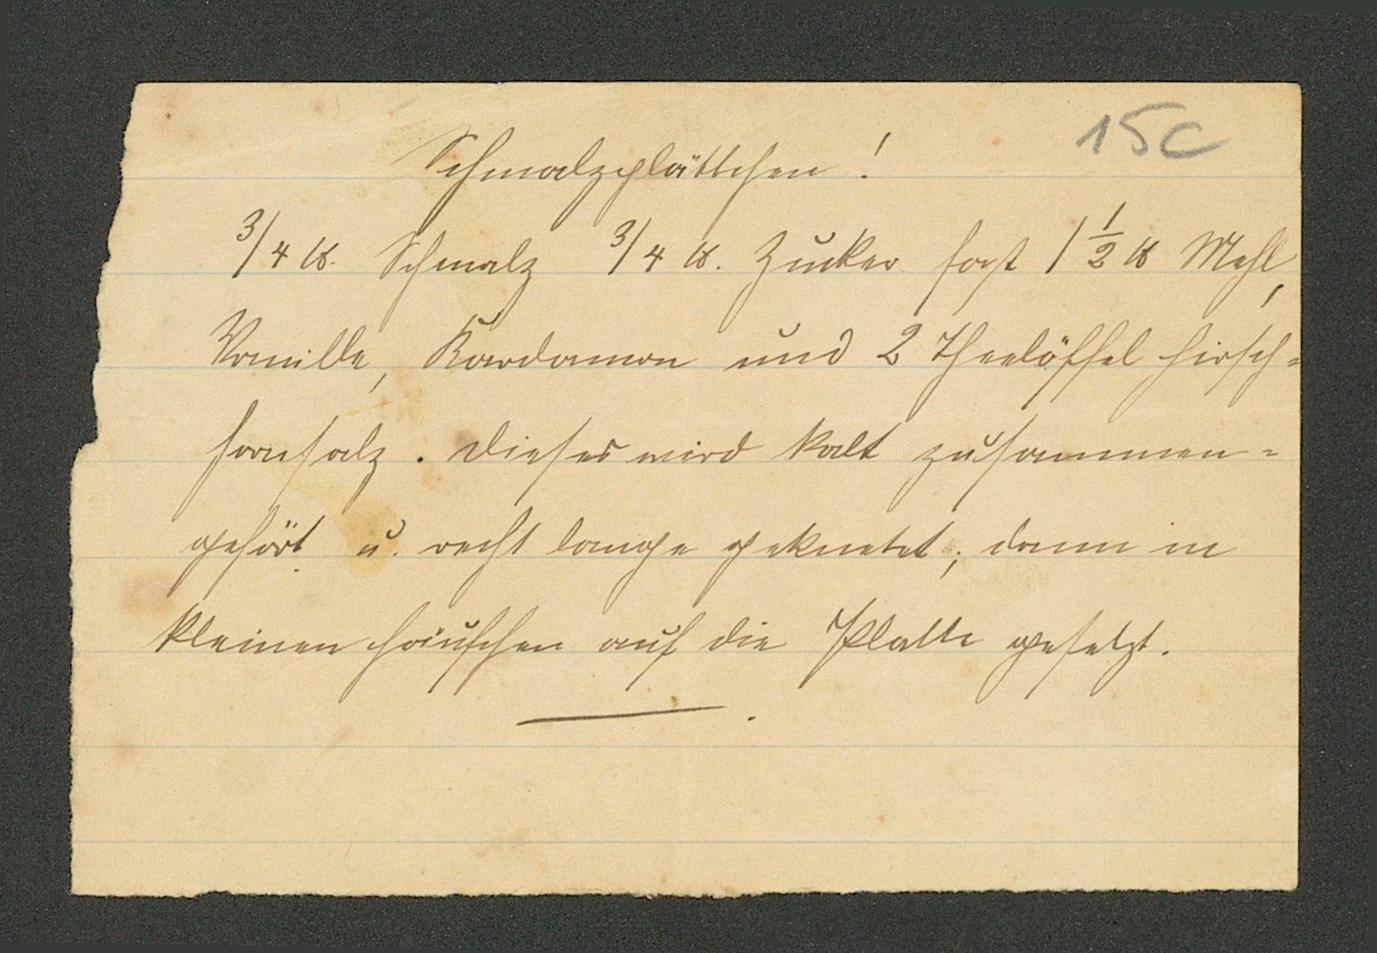 15c
Schmalzplättchen!
3/4 ℔. Schmalz 3/4 ℔. Zucker fast 1 1/2 ℔ Mehl,
Vanille, Kardamon und 2 Theelöffel Hirsch-
hornsalz. Dieses wird kalt zusammen-
gerührt u. recht lange geknetet; dann in
kleinen Häufchen auf die Platte gesetzt.